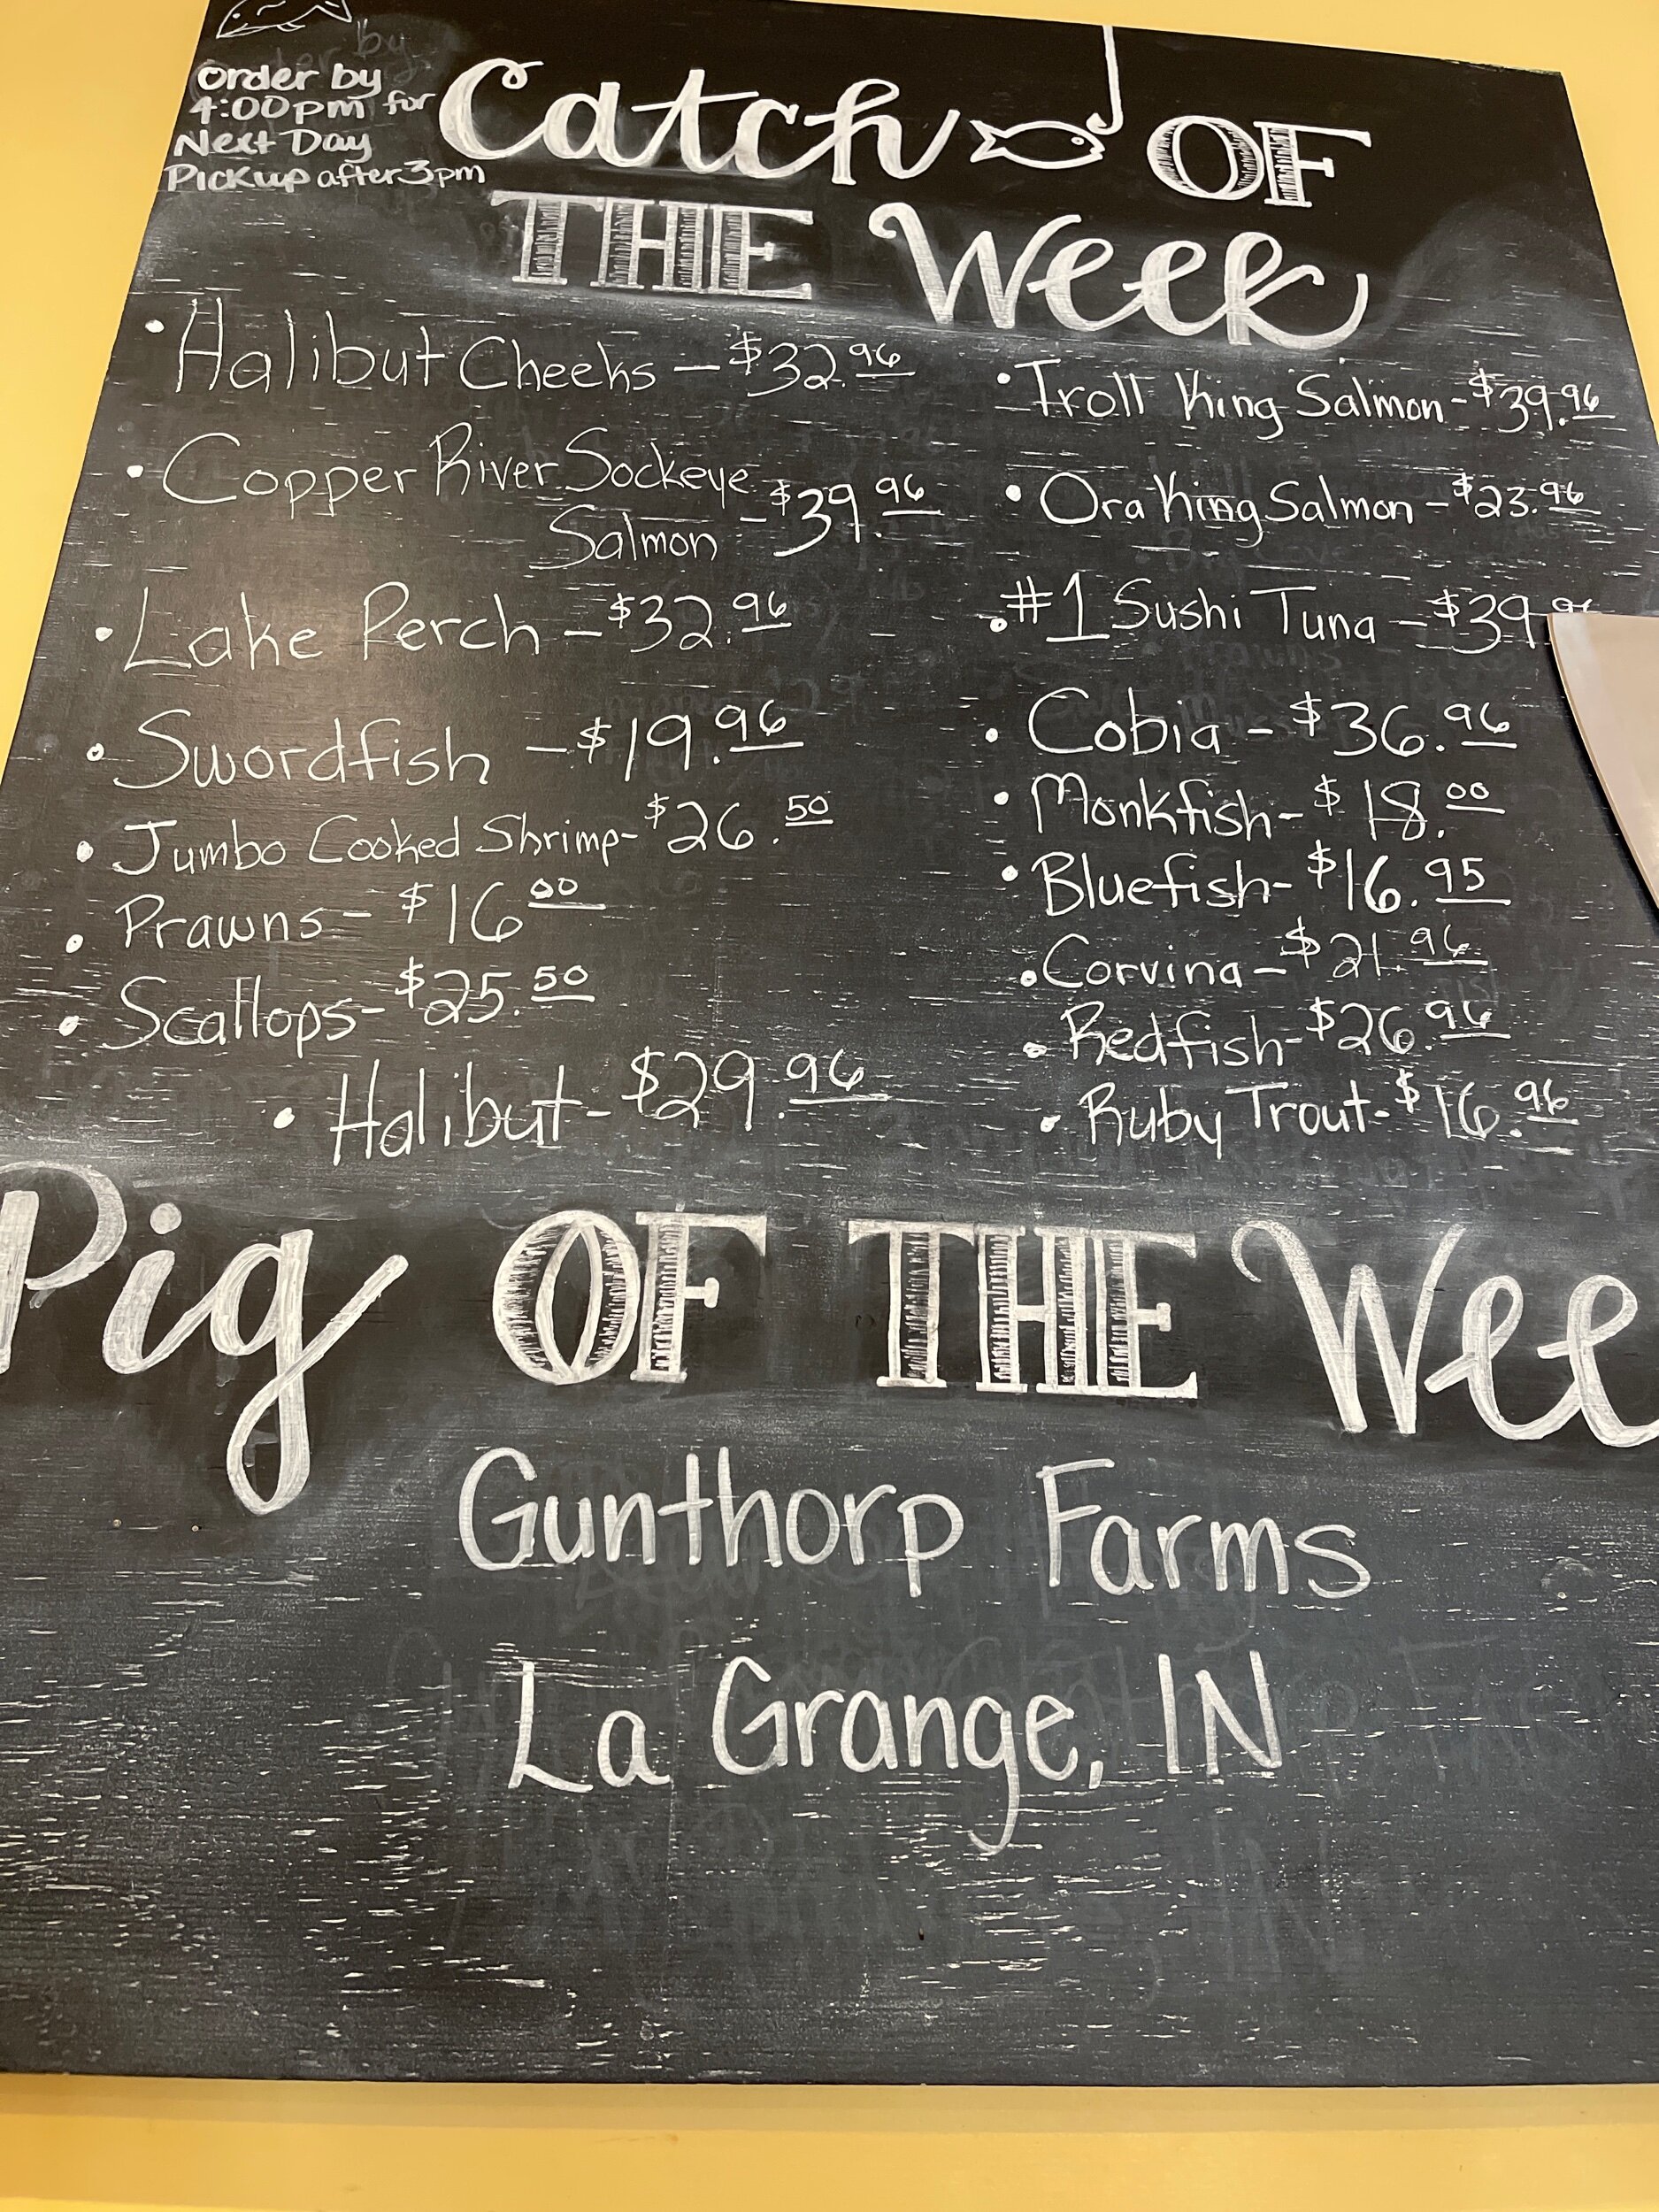 Order by
4:00pm for
Next Day
Pickup after 3pm
Catch OF
THE Week
• Halibut Cheeks - $32.96
• Copper River Sockeye
Salmon - $39.96
• Lake Perch - $32.96
• Swordfish - $19.96
• Jumbo Cooked Shrimp - $26.50
• Prawns - $16 00
• Scallops - $25.50
• Halibut - $29.96
• Troll King Salmon - $39.96
• Ora King Salmon - $23.96
• #1 Sushi Tuna - $39
• Cobia - $36.96
• Monkfish - $18.00
• Bluefish - $16.95
• Corvina - $21.96
• Redfish - $26.96
• Ruby Trout - $16.96
Pig OF THE Wee
Gunthorp Farms
La Grange, IN